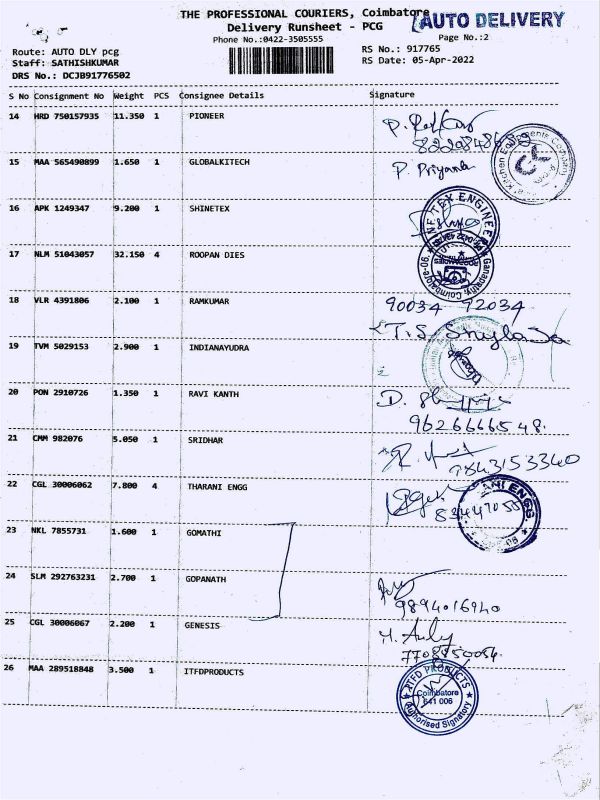 THE PROFESSIONAL COURIERS, Coimbatore
AUTO DELIVERY
Delivery Runsheet - PCG
Page No.:2
Phone No.:0422-3505555
Route: AUTO DLY pcg
RS No.: 917765
Staff: SATHISHKUMAR
RS Date: 05-Apr-2022
DRS No.: DCJB91776502
S No Consignment No Weight PCS Consignee Details Signature
14 HRD 750157935 11.350 1 PIONEER
15 MAA 565490899 1.650 1 GLOBALKITECH P. Priyanka
16 APK 1249347 9.200 1 SHINETEX
17 NLM 51043057 32.150 4 ROOPAN DIES
18 VLR 4391806 2.100 1 RAMKUMAR 90034 92034
19 TVM 5029153 2.900 1 INDIANYUDRA
20 PON 2910726 1.350 1 RAVI KANTH
9626666548.
21 CMM 982076 5.050 1 SRIDHAR
9843153340
22 CGL 30006062 7.800 4 THARANI ENGG
23 NKL 7855731 1.600 1 GOMATHI
24 SLM 292763231 2.700 1 GOPANATH
9894016940
25 CGL 30006067 2.200 1 GENESIS
7708850054
26 MAA 289518848 3.500 1 ITFDPRODUCTS
RTFD PRODUCTS
Coimbatore
641 006
Authorised Signatory